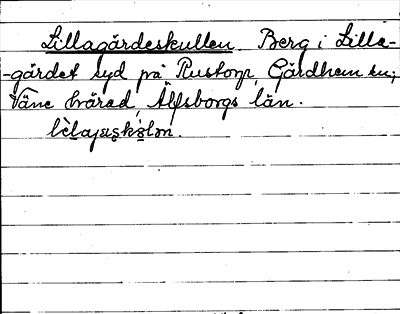 Lillagärdeskullen. Berg i Lilla-
-gärdet syd på Rustorp, Gärdhem sn;
Väne härad, Älfsborgs län.